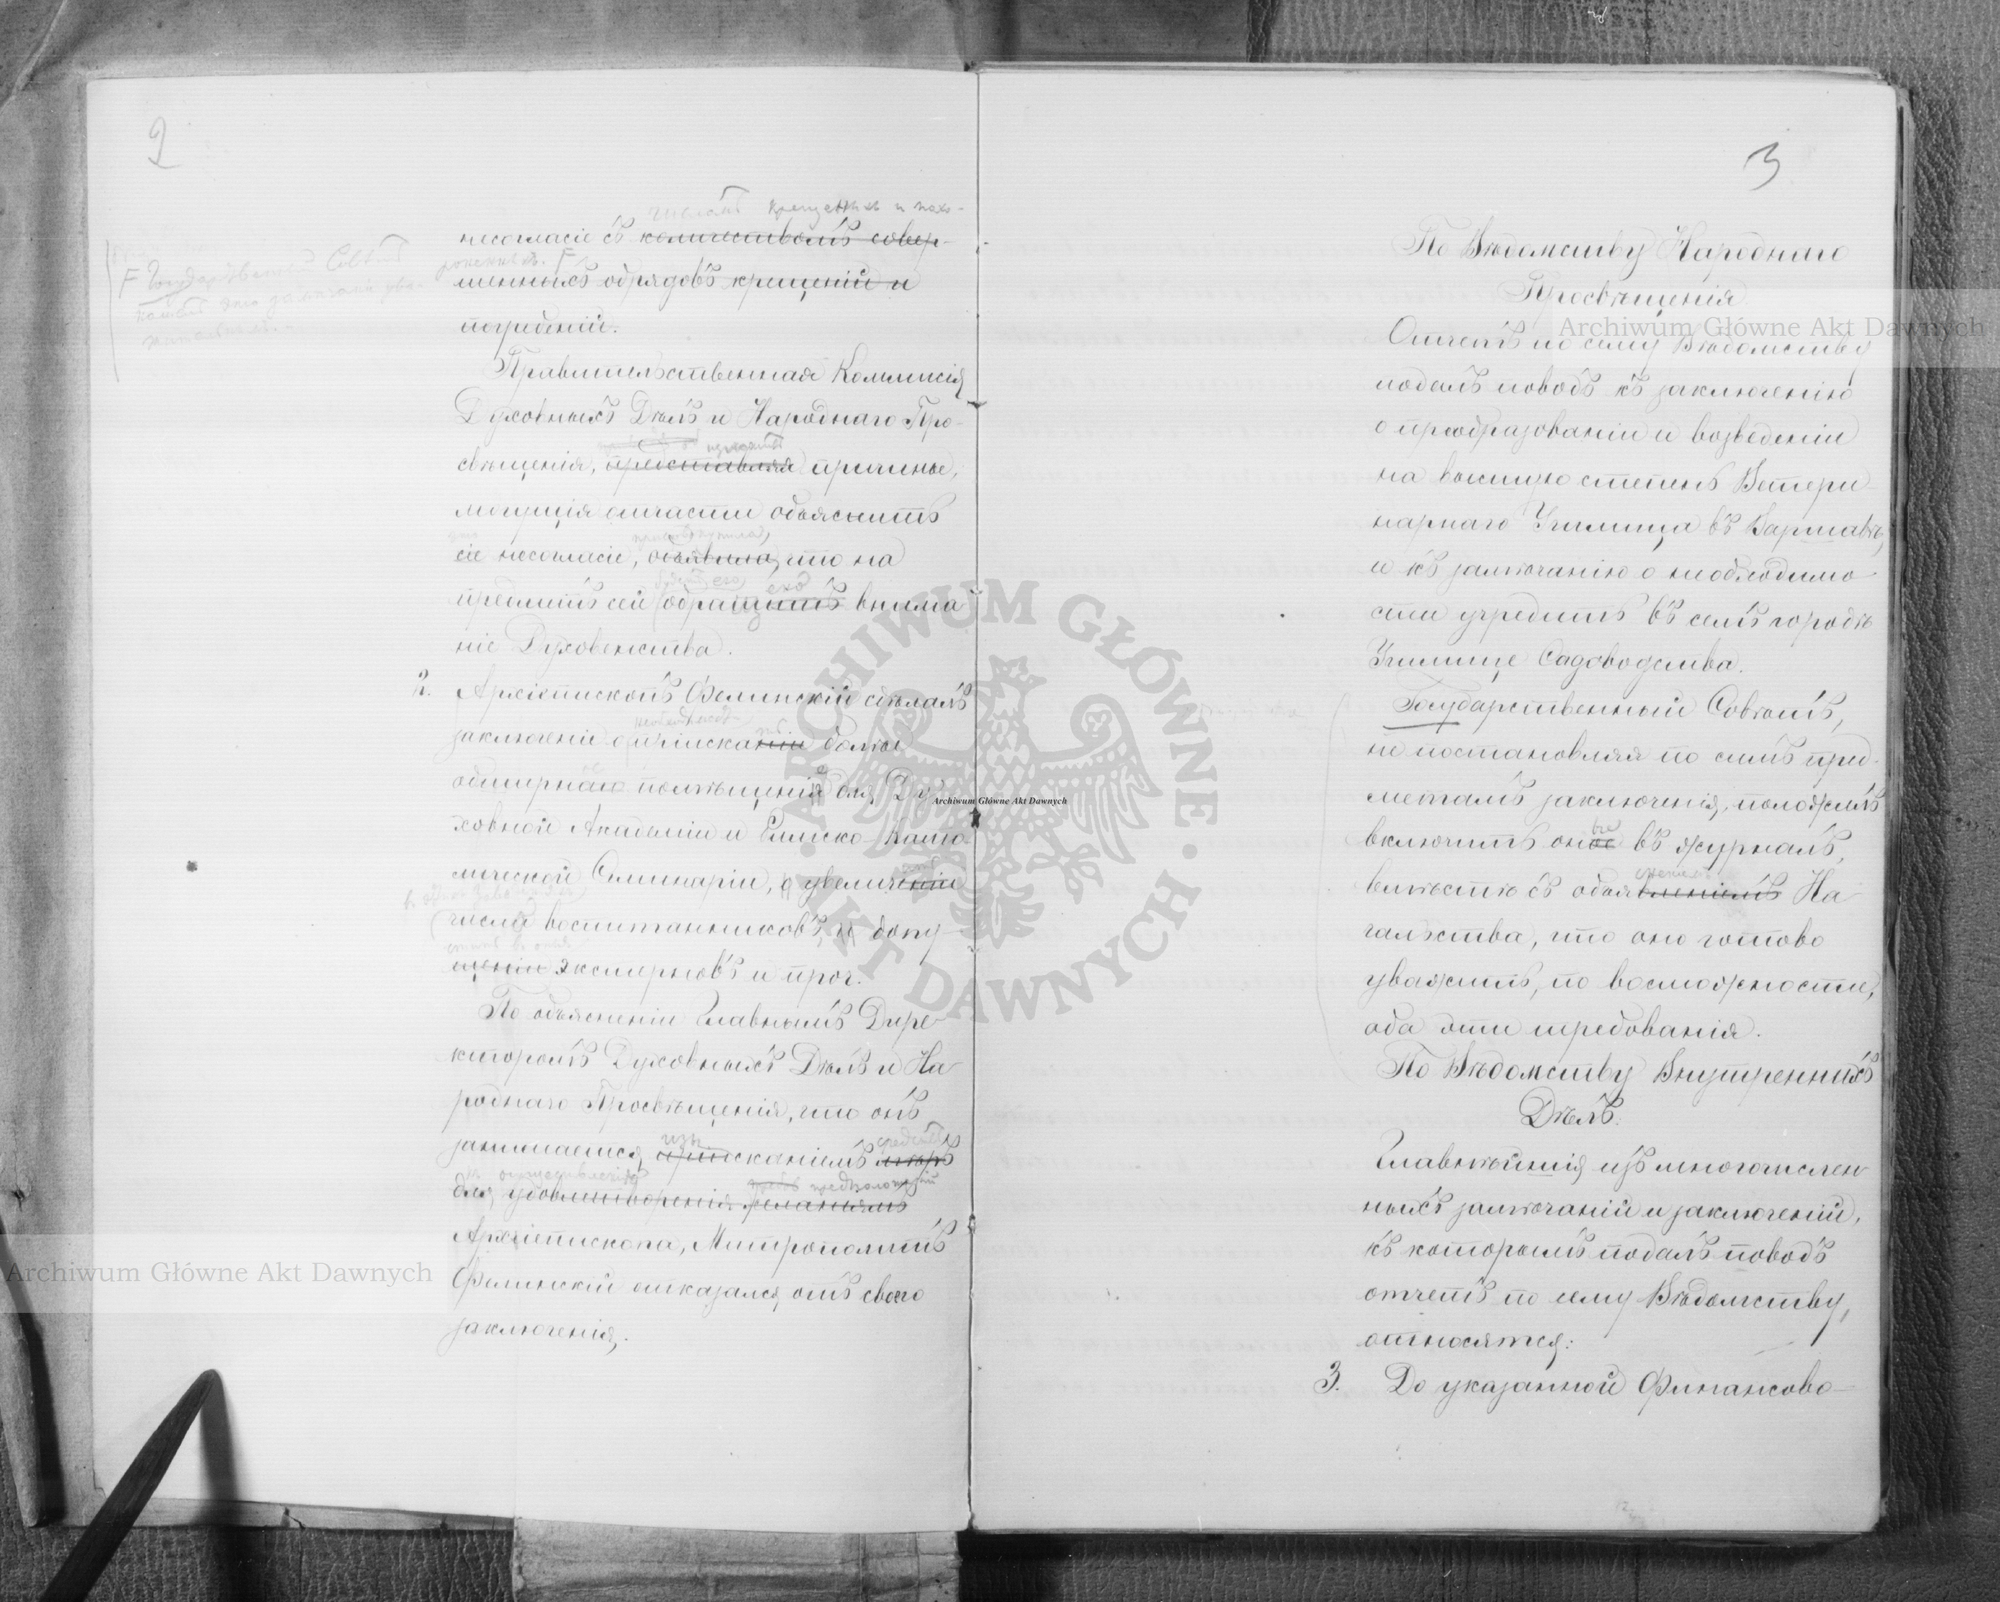 2
числомъ крещенныхъ и похо-
несогласіе съ количествомъ совер-
роненныхъ. F
шенныхъ обрядовъ крещеній и
погребеній.
F Государственный Совѣтъ
Правительственная Коммисія
Духовныхъ Дѣлъ и Народнаго Про-
свѣщенія, представляя причины,
могущія отчасти объяснить
сіе несогласіе, объявила, что на
предметъ сей обращитъ внима-
ніе Духовенства.
2. Архіепископъ Фелинскій сдѣлалъ
заключеніе о пріисканіи болѣе
обширнаго помѣщенія для Ду-
ховной Академіи и Римско-Като-
лической Семинаріи, о увеличеніи
числа воспитанниковъ, и допу-
щеніи экстерновъ и проч.
По объясненіи Главнымъ Дире-
кторомъ Духовныхъ Дѣлъ и На-
роднаго Просвѣщенія, что онъ
изы средствъ
занимается пріисканіемъ мѣръ
къ осуществленію предположеній
для удовлетворенія желаніямъ
Архіепископа, Митрополитъ
Фелинскій отказался отъ своего
заключенія.
3
По Вѣдомству Народнаго
Просвѣщенія
Отчетъ по сему Вѣдомству
подалъ поводъ къ заключенію
о преобразованіи и возведеніи
на высшую степень Ветери-
нарнаго Училища въ Варшавѣ,
и къ замѣчанію о необходимо-
сти учредить въ семъ городѣ
Училище Садоводства.
Государственный Совѣтъ,
не постановляя по симъ пред-
метамъ заключенія, положилъ
включить оное въ журналъ,
вмѣстѣ съ объявленіемъ На-
чальства, что оно готово
уважить, по возможности,
оба эти требованія.
По Вѣдомству Внутреннихъ
Дѣлъ.
Главнѣйшія изъ многочислен-
ныхъ замѣчаній и заключеній,
къ которымъ подалъ поводъ
отчетъ по сему Вѣдомству,
относятся:
3. До указанной Финансово-
Archiwum Główne Akt Dawnych
Archiwum Główne Akt Dawnych
Archiwum Główne Akt Dawnych
ARCHIWUM GŁÓWNE AKT DAWNYCH